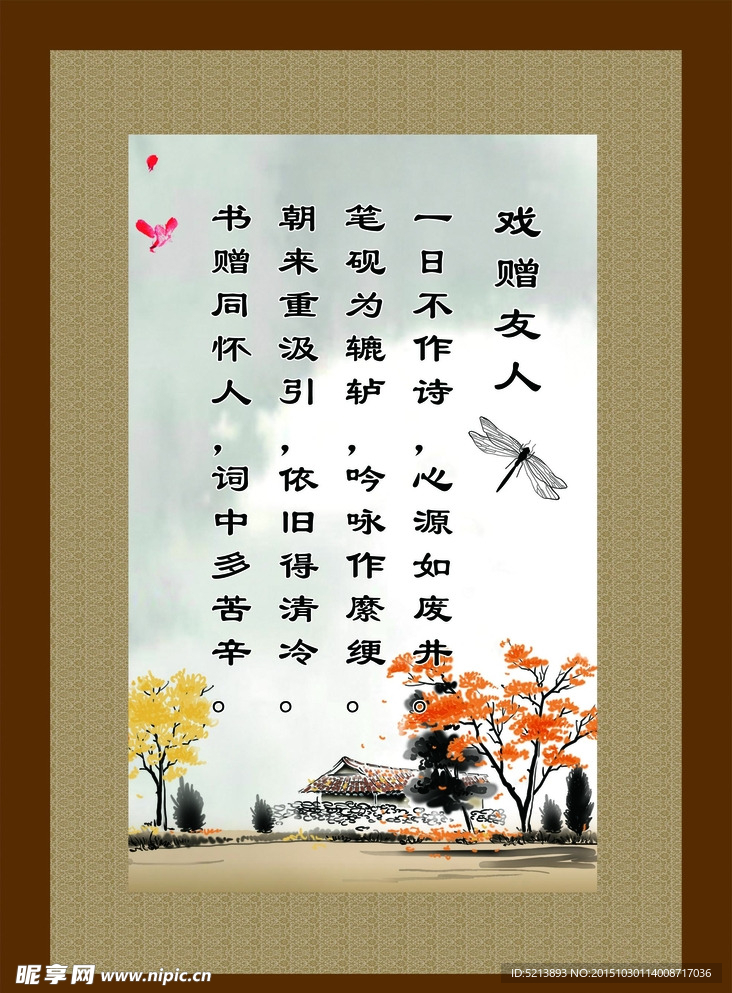 戏赠友人
一日不作诗,心源如废井。
笔砚为辘轳,吟咏作縻绠。
朝来重汲引,依旧得清冷。
书赠同怀人,词中多苦辛。
昵享网 www.nipic.cn
ID:5213893 NO:20151030114008717036